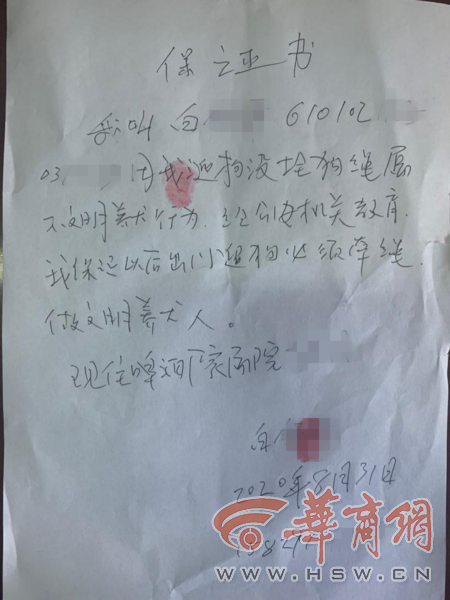 保证书
我叫 白 610102
03 因我遛狗没拴狗绳属
不文明养犬行为，经公安机关教育，
我保证以后出门遛狗必须牵绳，
做文明养犬人。
现住啤酒厂家属院
白
2020年8月31日
華商網
WWW.HSW.CN